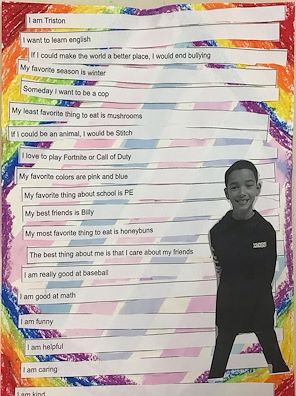 I am Triston
I want to learn english
If I could make the world a better place, I would end bullying
My favorite season is winter
Someday I want to be a cop
My least favorite thing to eat is mushrooms
If I could be an animal, I would be Stitch
I love to play Fortnite or Call of Duty
My favorite colors are pink and blue
My favorite thing about school is PE
My best friends is Billy
My most favorite thing to eat is honeybuns
The best thing about me is that I care about my friends
I am really good at baseball
I am good at math
I am funny
I am helpful
I am caring
I am kind